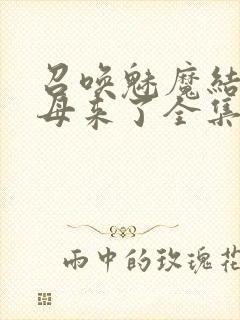 召唤魅魔结
母来了全集
雨中的玫瑰花